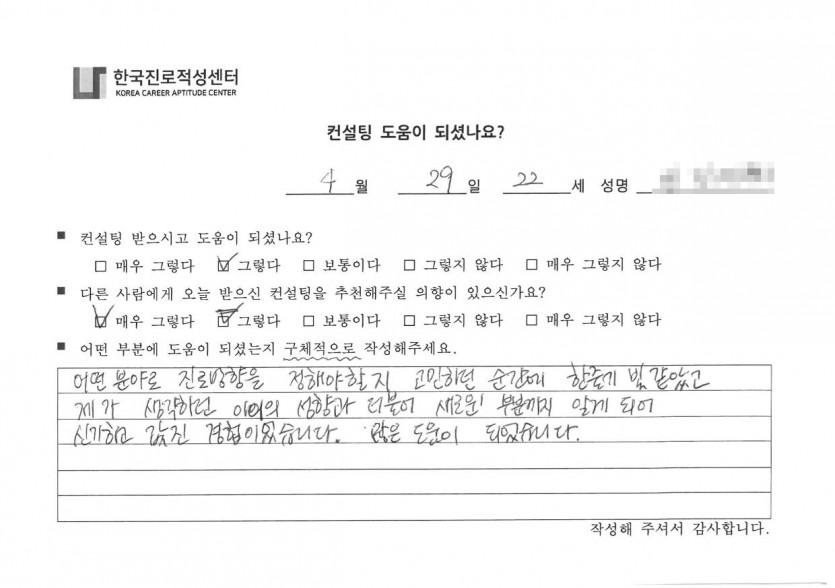 한국진로적성센터
KOREA CAREER APTITUDE CENTER
컨설팅 도움이 되셨나요?
4 월 29 일 22 세 성명
■ 컨설팅 받으시고 도움이 되셨나요?
□ 매우 그렇다 ☑ 그렇다 □ 보통이다 □ 그렇지 않다 □ 매우 그렇지 않다
■ 다른 사람에게 오늘 받으신 컨설팅을 추천해주실 의향이 있으신가요?
☑ 매우 그렇다 ☑ 그렇다 □ 보통이다 □ 그렇지 않다 □ 매우 그렇지 않다
■ 어떤 부분에 도움이 되셨는지 구체적으로 작성해주세요.
어떤 분야로 진로방향을 정해야할지 고민하던 순간에 한줄기 빛같았고
제가 생각하던 성향과 더불어 새로운 부분까지 알게 되어
신기하고 값진 경험이었습니다. 많은 도움이 되었습니다.
작성해 주셔서 감사합니다.